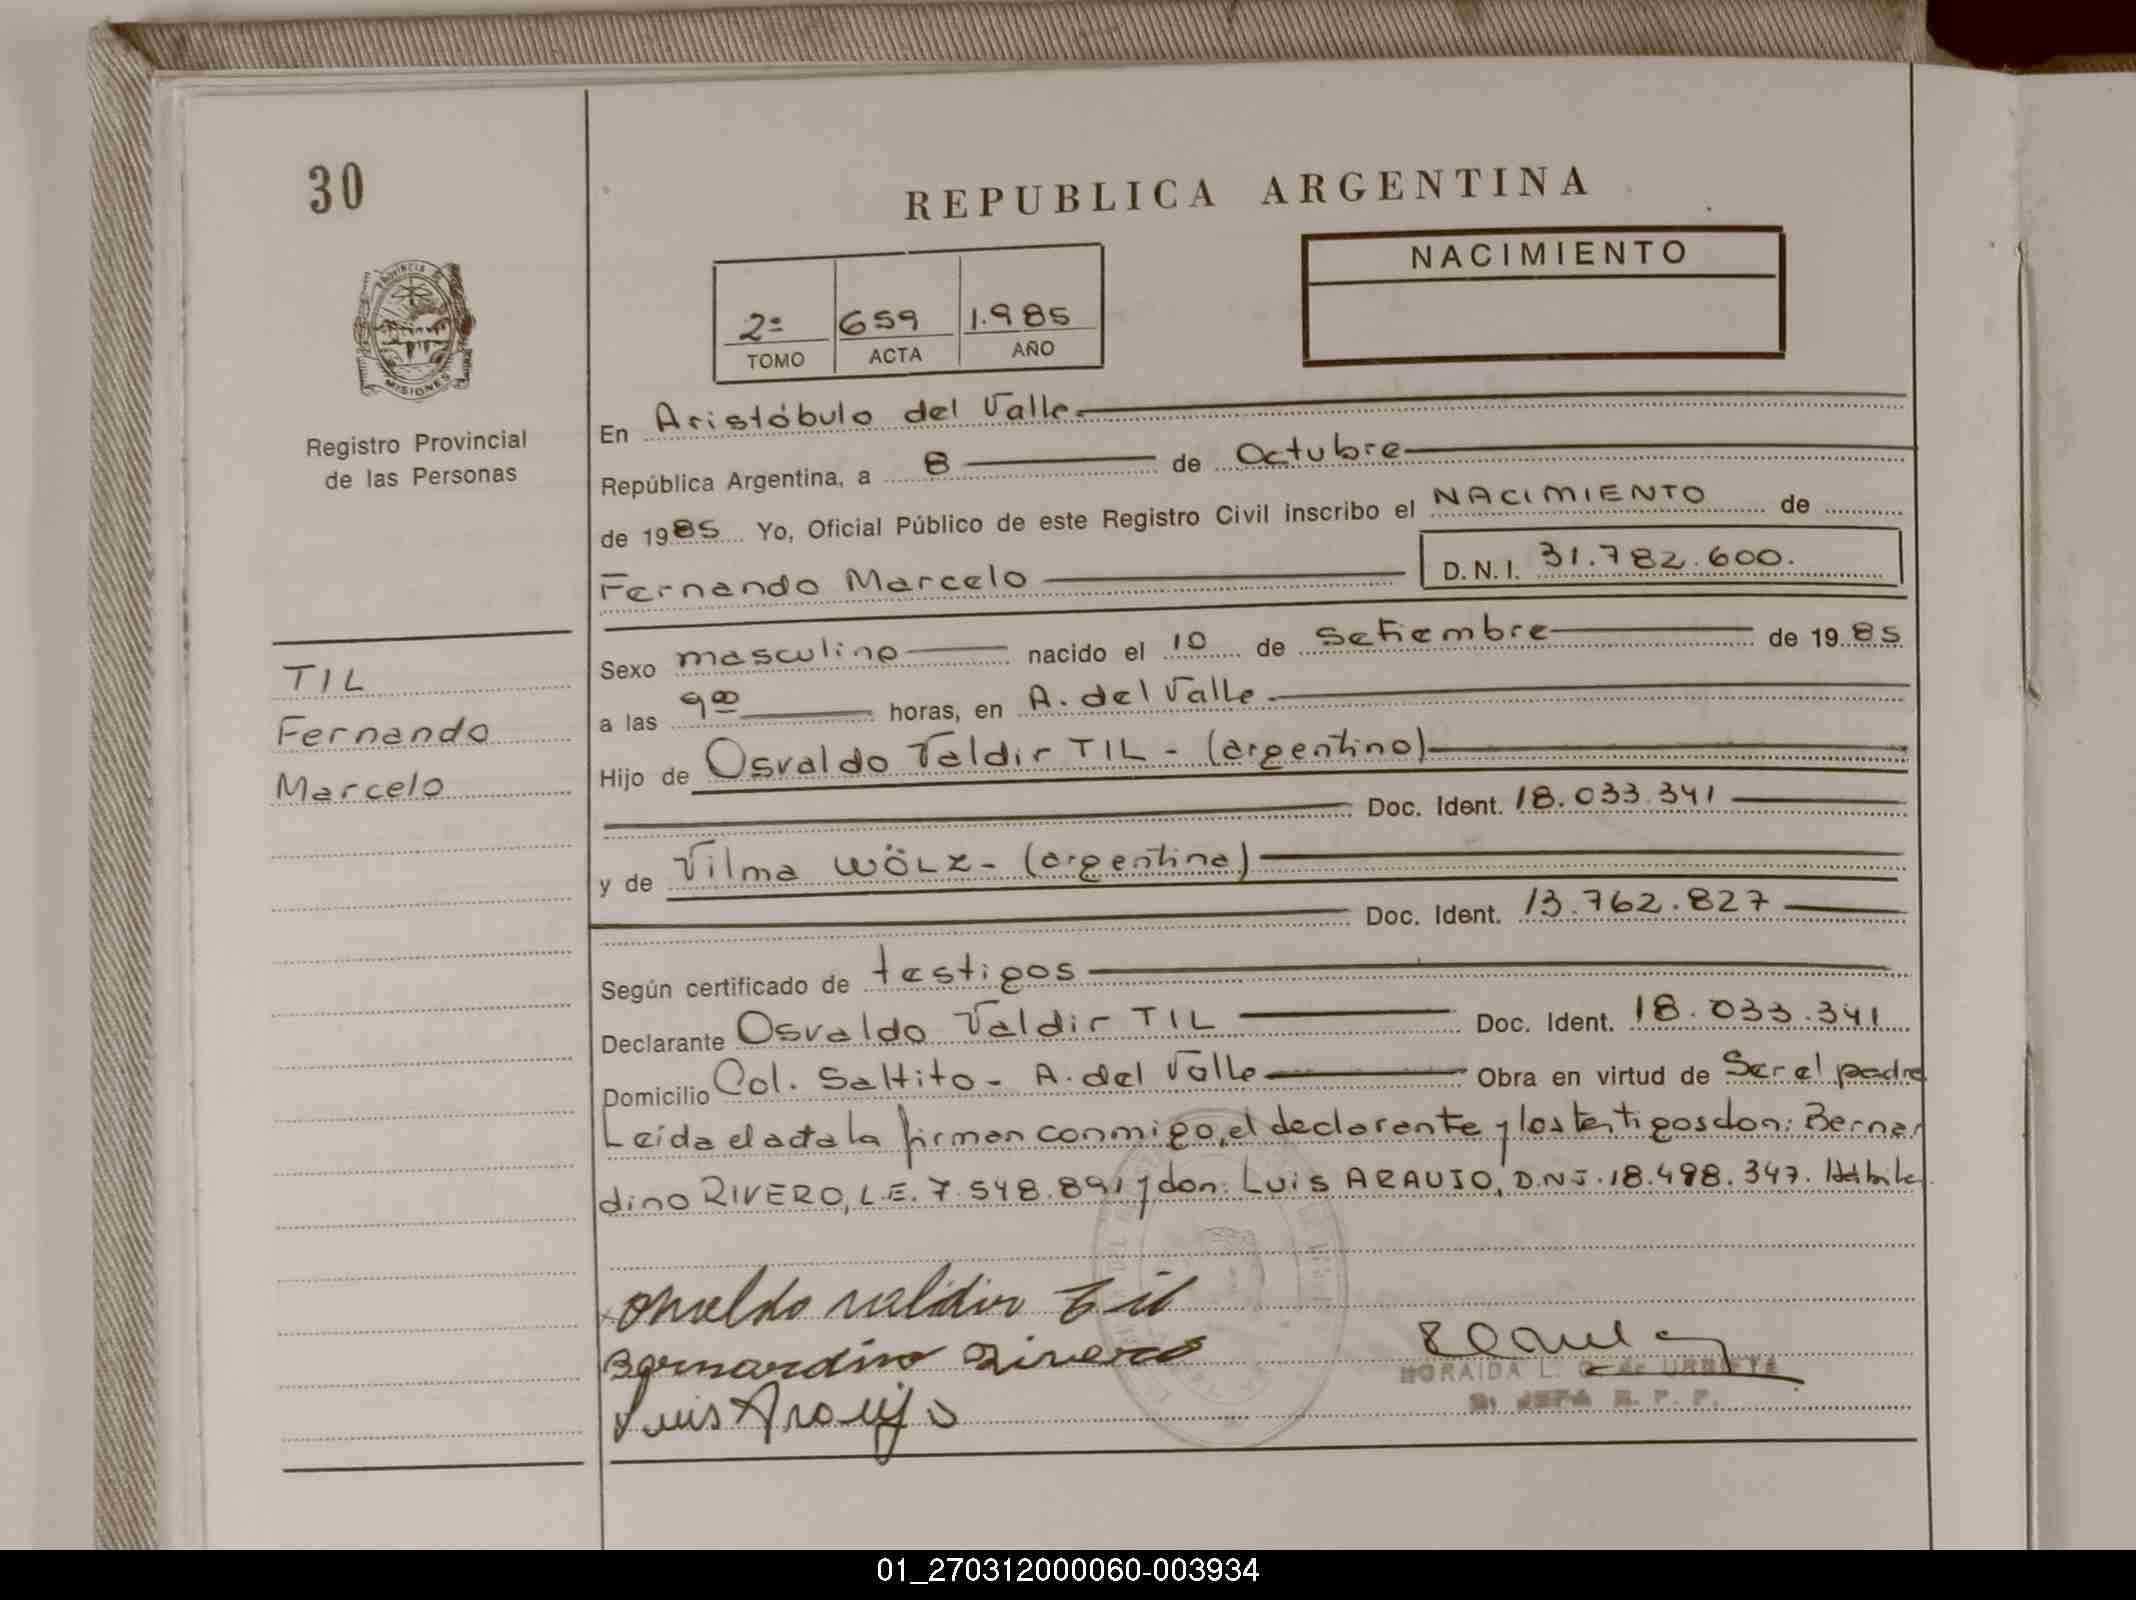 30
REPUBLICA ARGENTINA
NACIMIENTO
2º 659 1.985
TOMO ACTA AÑO
PROVINCIA DE
MISIONES
Registro Provincial
de las Personas
En Aristóbulo del Valle.
República Argentina, a 8 de Octubre
de 1985 Yo, Oficial Público de este Registro Civil inscribo el NACIMIENTO de
Fernando Marcelo D.N.I. 31.782.600.
TIL
Fernando
Marcelo
Sexo masculino nacido el 10 de Setiembre de 1985
a las 9 00 horas, en A. del Valle.
Hijo de Osvaldo Valdir TIL - (argentino)
Doc. Ident. 18.033.341
y de Vilma WÖLZ - (argentina)
Doc. Ident. 13.762.827
Según certificado de testigos
Declarante Osvaldo Valdir TIL Doc. Ident. 18.033.341
Domicilio Col. Saltito - A. del Valle Obra en virtud de Ser el padre
Leída el acta la firman conmigo, el declarante y los testigos don: Bernar
dino RIVERO, L.E. 7.548.891 y don: Luis ARAUJO, D.N.I. 18.498.347.
Osvaldo valdir til
Bernardino Rivero
Luis Araujo
HORAIDA L. URBIETA
JEFA R. P. P.
01_270312000060-003934